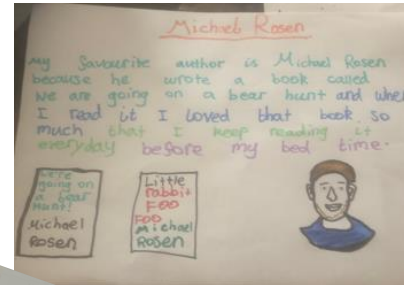 Michael Rosen
My favourite author is Michael Rosen
because he wrote a book called
We are going on a bear hunt and when
I read it I loved that book so
much that I keep reading it
everyday before my bed time.
We're
going on
a bear
Hunt!
Michael
Rosen
Little
rabbit
Foo
Foo
Michael
Rosen